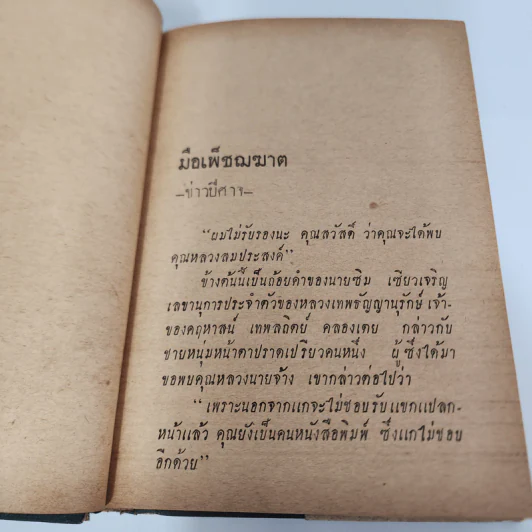 มือเพ็ชฌฆาต
–ข่าวปีศาจ–
“ผมไม่รับรองนะ คุณสวัสดิ์ ว่าคุณจะได้พบ
คุณหลวงสมประสงค์”
ข้างต้นนี้เป็นถ้อยคำของนายซิม เซียวเจริญ
เลขานุการประจำตัวของหลวงเทพธัญญานุรักษ์ เจ้า-
ของคฤหาสน์ เทพสถิตย์ คลองเตย กล่าวกับ
ชายหนุ่มหน้าตาปราดเปรียวคนหนึ่ง ผู้ซึ่งได้มา
ขอพบคุณหลวงนายจ้าง เขากล่าวต่อไปว่า
“เพราะนอกจากแกจะไม่ชอบรับแขกแปลก-
หน้าแล้ว คุณยังเป็นคนหนังสือพิมพ์ ซึ่งแกไม่ชอบ
อีกด้วย”